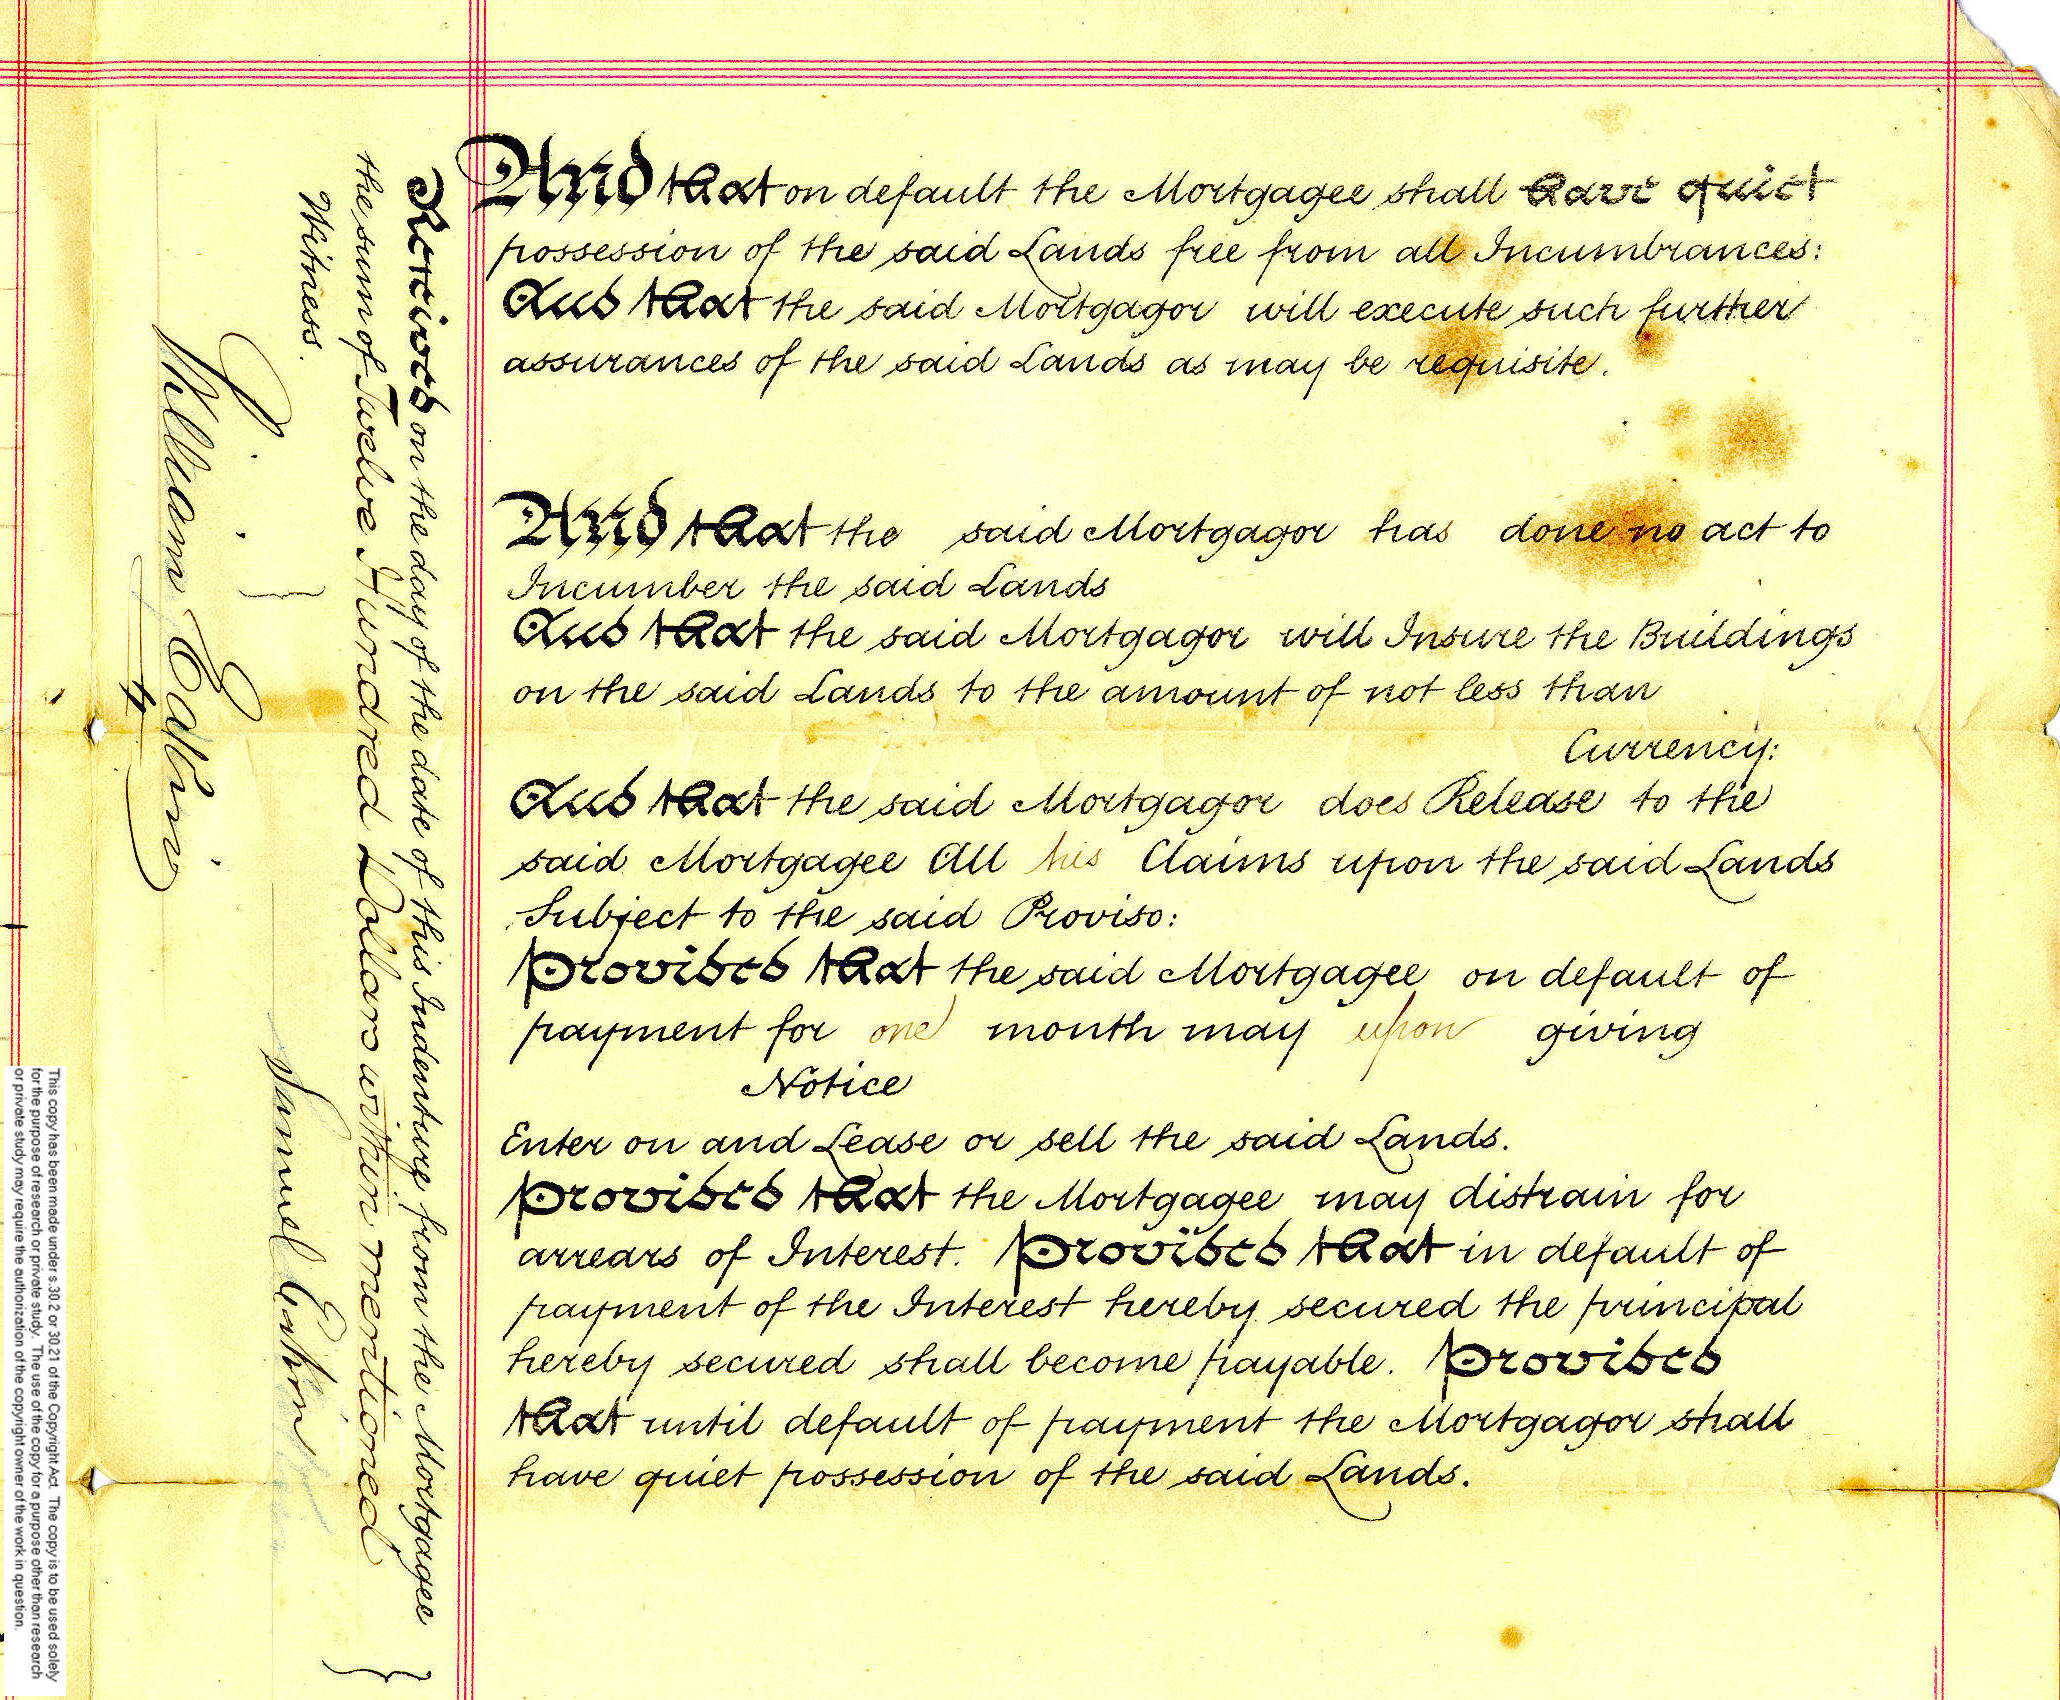 And that on default the Mortgagee shall have quiet
possession of the said Lands free from all Incumbrances:
And that the said Mortgagor will execute such further
assurances of the said Lands as may be requisite.
And that the said Mortgagor has done no act to
Incumber the said Lands
And that the said Mortgagor will Insure the Buildings
on the said Lands to the amount of not less than
Currency:
And that the said Mortgagor does Release to the
said Mortgagee All his Claims upon the said Lands
Subject to the said Proviso:
Provided that the said Mortgagee on default of
payment for one month may upon giving
Notice
Enter on and Lease or sell the said Lands.
Provided that the Mortgagee may distrain for
arrears of Interest. Provided that in default of
payment of the Interest hereby secured the principal
hereby secured shall become payable. Provided
that until default of payment the Mortgagor shall
have quiet possession of the said Lands.
Received on the day of the date of this Indenture from the Mortgagee
the sum of Twelve Hundred Dollars within mentioned
Witness.
William
Samuel
This copy has been made under s.30.2 or 30.21 of the Copyright Act. The copy is to be used solely
for the purpose of research or private study. The use of the copy for a purpose other than research
or private study may require the authorization of the copyright owner of the work in question.